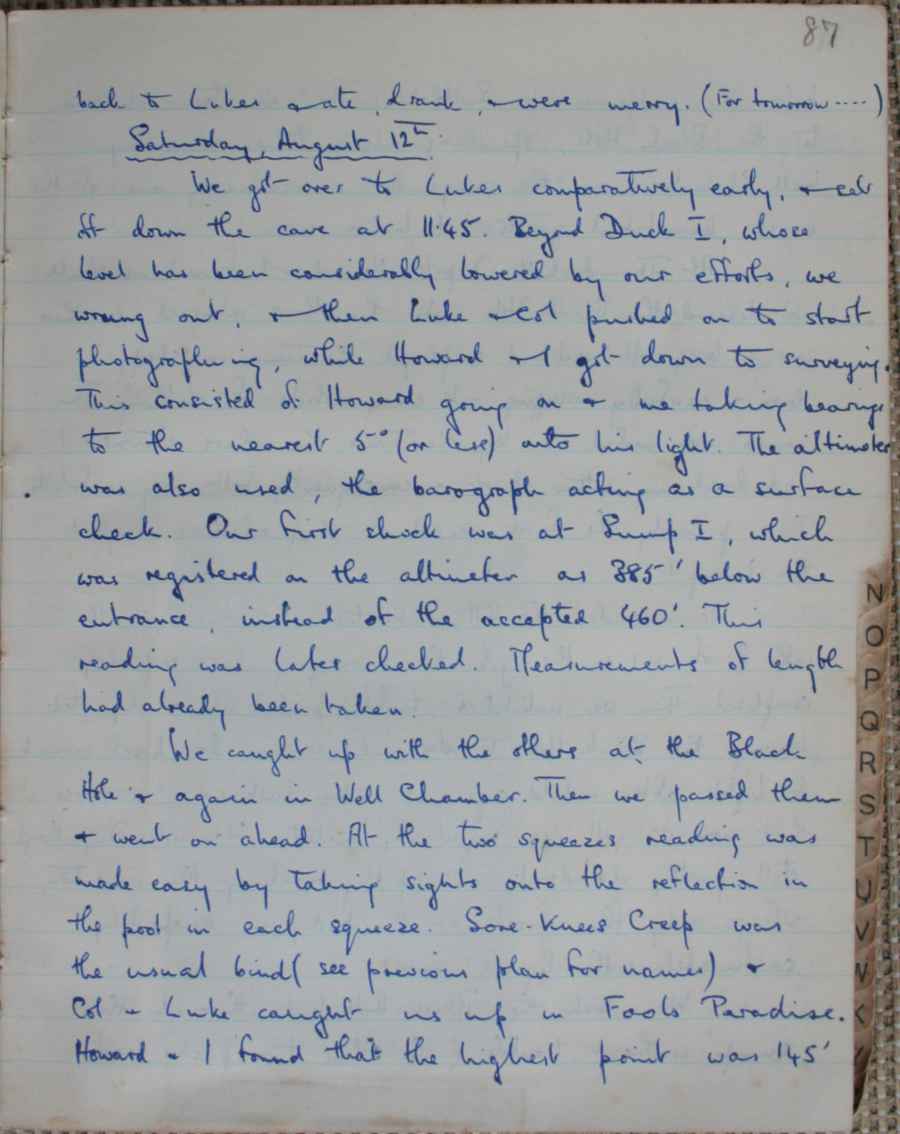 87
back to Lukes & ate, drank, & were merry. (For tomorrow ....)
Saturday, August 12th.
We got over to Lukes comparatively early, & set
off down the cave at 11.45. Beyond Duck I, whose
level has been considerably lowered by our efforts, we
wrung out, & then Luke & Col pushed on to start
photographing, while Howard & I got down to surveying.
This consisted of Howard going on & me taking bearings
to the nearest 5° (or less) onto his light. The altimeter
was also used, the barograph acting as a surface
check. Our first shock was at Sump I, which
was registered on the altimeter as 385' below the
entrance, instead of the accepted 460'. This
reading was later checked. Measurements of length
had already been taken.
We caught up with the others at the Black
Hole & again in Well Chamber. Then we passed them
& went on ahead. At the two squeezes reading was
made easy by taking sights onto the reflection in
the pool in each squeeze. Sore-Knees Creep was
the usual bind (see previous plan for names) &
Col & Luke caught us up in Fools Paradise.
Howard & I found that the highest point was 145'
N
O
P
Q
R
S
T
U
V
W
X